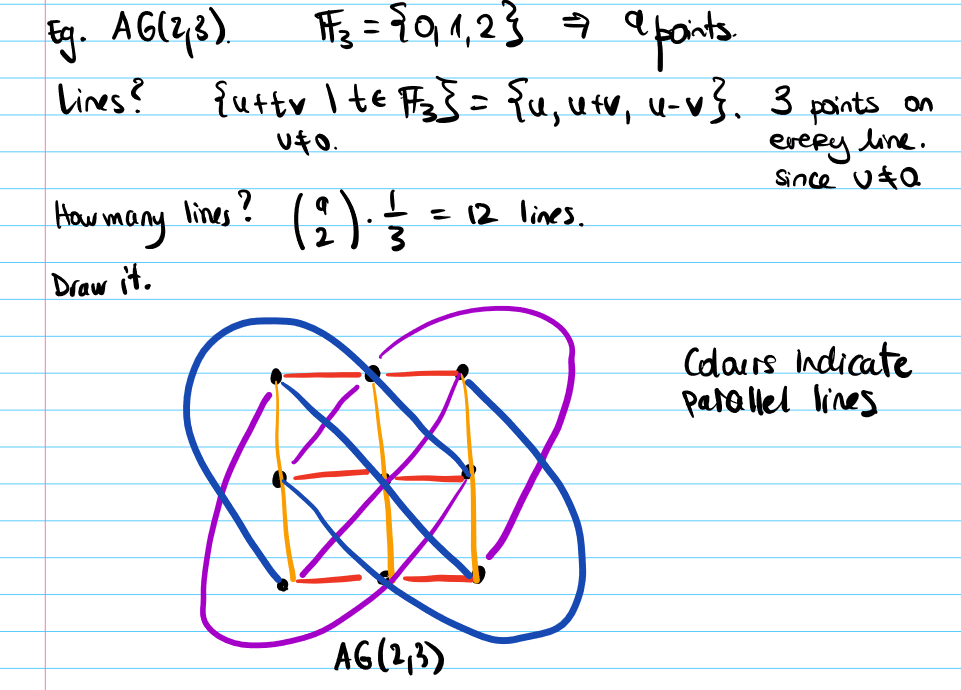 Eg. AG(2,3). 𝔽₃ = {0,1,2} ⇒ 9 points.
Lines? {u+tv | t ∈ 𝔽₃} = {u, u+v, u-v}. 3 points on
v≠0. every line.
since v≠0
How many lines? (9 2) · 1/3 = 12 lines.
Draw it.
Colours indicate
parallel lines
AG(2,3)